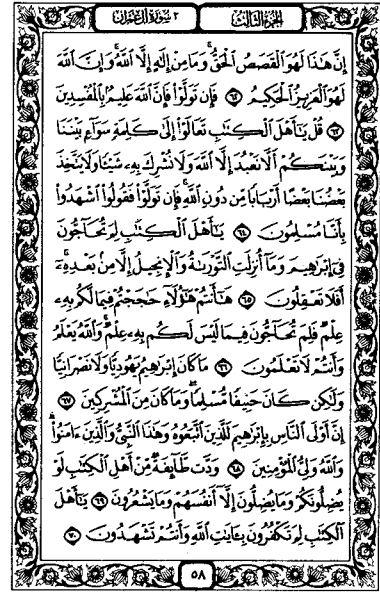 الجزء الثالث ٣ سورة آل عمران
إِنَّ هَٰذَا لَهُوَ ٱلْقَصَصُ ٱلْحَقُّ ۚ وَمَا مِنْ إِلَٰهٍ إِلَّا ٱللَّهُ ۚ وَإِنَّ ٱللَّهَ
لَهُوَ ٱلْعَزِيزُ ٱلْحَكِيمُ ٦٢ فَإِن تَوَلَّوْا۟ فَإِنَّ ٱللَّهَ عَلِيمٌۢ بِٱلْمُفْسِدِينَ
٦٣ قُلْ يَٰٓأَهْلَ ٱلْكِتَٰبِ تَعَالَوْا۟ إِلَىٰ كَلِمَةٍ سَوَآءٍۭ بَيْنَنَا
وَبَيْنَكُمْ أَلَّا نَعْبُدَ إِلَّا ٱللَّهَ وَلَا نُشْرِكَ بِهِۦ شَيْـًٔا وَلَا يَتَّخِذَ
بَعْضُنَا بَعْضًا أَرْبَابًا مِّن دُونِ ٱللَّهِ ۚ فَإِن تَوَلَّوْا۟ فَقُولُوا۟ ٱشْهَدُوا۟
بِأَنَّا مُسْلِمُونَ ٦٤ يَٰٓأَهْلَ ٱلْكِتَٰبِ لِمَ تُحَآجُّونَ
فِىٓ إِبْرَٰهِيمَ وَمَآ أُنزِلَتِ ٱلتَّوْرَىٰةُ وَٱلْإِنجِيلُ إِلَّا مِنۢ بَعْدِهِۦٓ ۚ
أَفَلَا تَعْقِلُونَ ٦٥ هَٰٓأَنتُمْ هَٰٓؤُلَآءِ حَٰجَجْتُمْ فِيمَا لَكُم بِهِۦ
عِلْمٌ فَلِمَ تُحَآجُّونَ فِيمَا لَيْسَ لَكُم بِهِۦ عِلْمٌ ۚ وَٱللَّهُ يَعْلَمُ
وَأَنتُمْ لَا تَعْلَمُونَ ٦٦ مَا كَانَ إِبْرَٰهِيمُ يَهُودِيًّا وَلَا نَصْرَانِيًّا
وَلَٰكِن كَانَ حَنِيفًا مُّسْلِمًا وَمَا كَانَ مِنَ ٱلْمُشْرِكِينَ ٦٧
إِنَّ أَوْلَى ٱلنَّاسِ بِإِبْرَٰهِيمَ لَلَّذِينَ ٱتَّبَعُوهُ وَهَٰذَا ٱلنَّبِىُّ وَٱلَّذِينَ ءَامَنُوا۟ ۗ
وَٱللَّهُ وَلِىُّ ٱلْمُؤْمِنِينَ ٦٨ وَدَّت طَّآئِفَةٌ مِّنْ أَهْلِ ٱلْكِتَٰبِ لَوْ
يُضِلُّونَكُمْ وَمَا يُضِلُّونَ إِلَّآ أَنفُسَهُمْ وَمَا يَشْعُرُونَ ٦٩ يَٰٓأَهْلَ
ٱلْكِتَٰبِ لِمَ تَكْفُرُونَ بِـَٔايَٰتِ ٱللَّهِ وَأَنتُمْ تَشْهَدُونَ ٧٠
٥٨